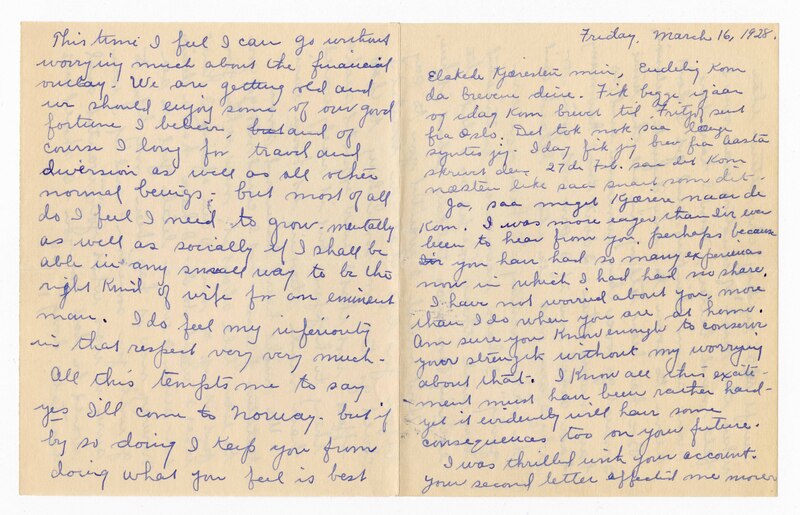 This time I feel I can go without
worrying much about the financial
outlay. We are getting old and
we should enjoy some of our good
fortune I believe, but and of
course I long for travel and
diversion as well as all other
normal beings; but most of all
do I feel I need to grow mentally
as well as socially if I shall be
able in any small way to be the
right kind of wife for an eminent
man. I do feel my inferiority
in that respect very very much.
All this tempts me to say
yes I'll come to Norway. but if
by so doing I keep you from
doing what you feel is best
Friday, March 16, 1928.
Elskede Kjæresten min, Endelig kom
da brevene dine. Fik begge igaar
og idag kom brevet til Fritjof sent
fra Oslo. Det tok nok saa længe
syntes jeg. Idag fik jeg brev fra Aasta
skrevet den 27de Feb. saa det kom
næsten like saa snart som dit.
Ja, saa meget kjærere naar de
kom. I was more eager than I'v ever
been to hear from you. perhaps because
you have had so many experiences
now in which I had had no share.
I have not worried about you, more
than I do when you are at home.
Am sure you know enough to conserve
your strength without my worrying
about that. I know all this excite-
ment must have been rather hard-
yet it evidently will have some
consequences too on your future.
I was thrilled with your account.
Your second letter affected me more